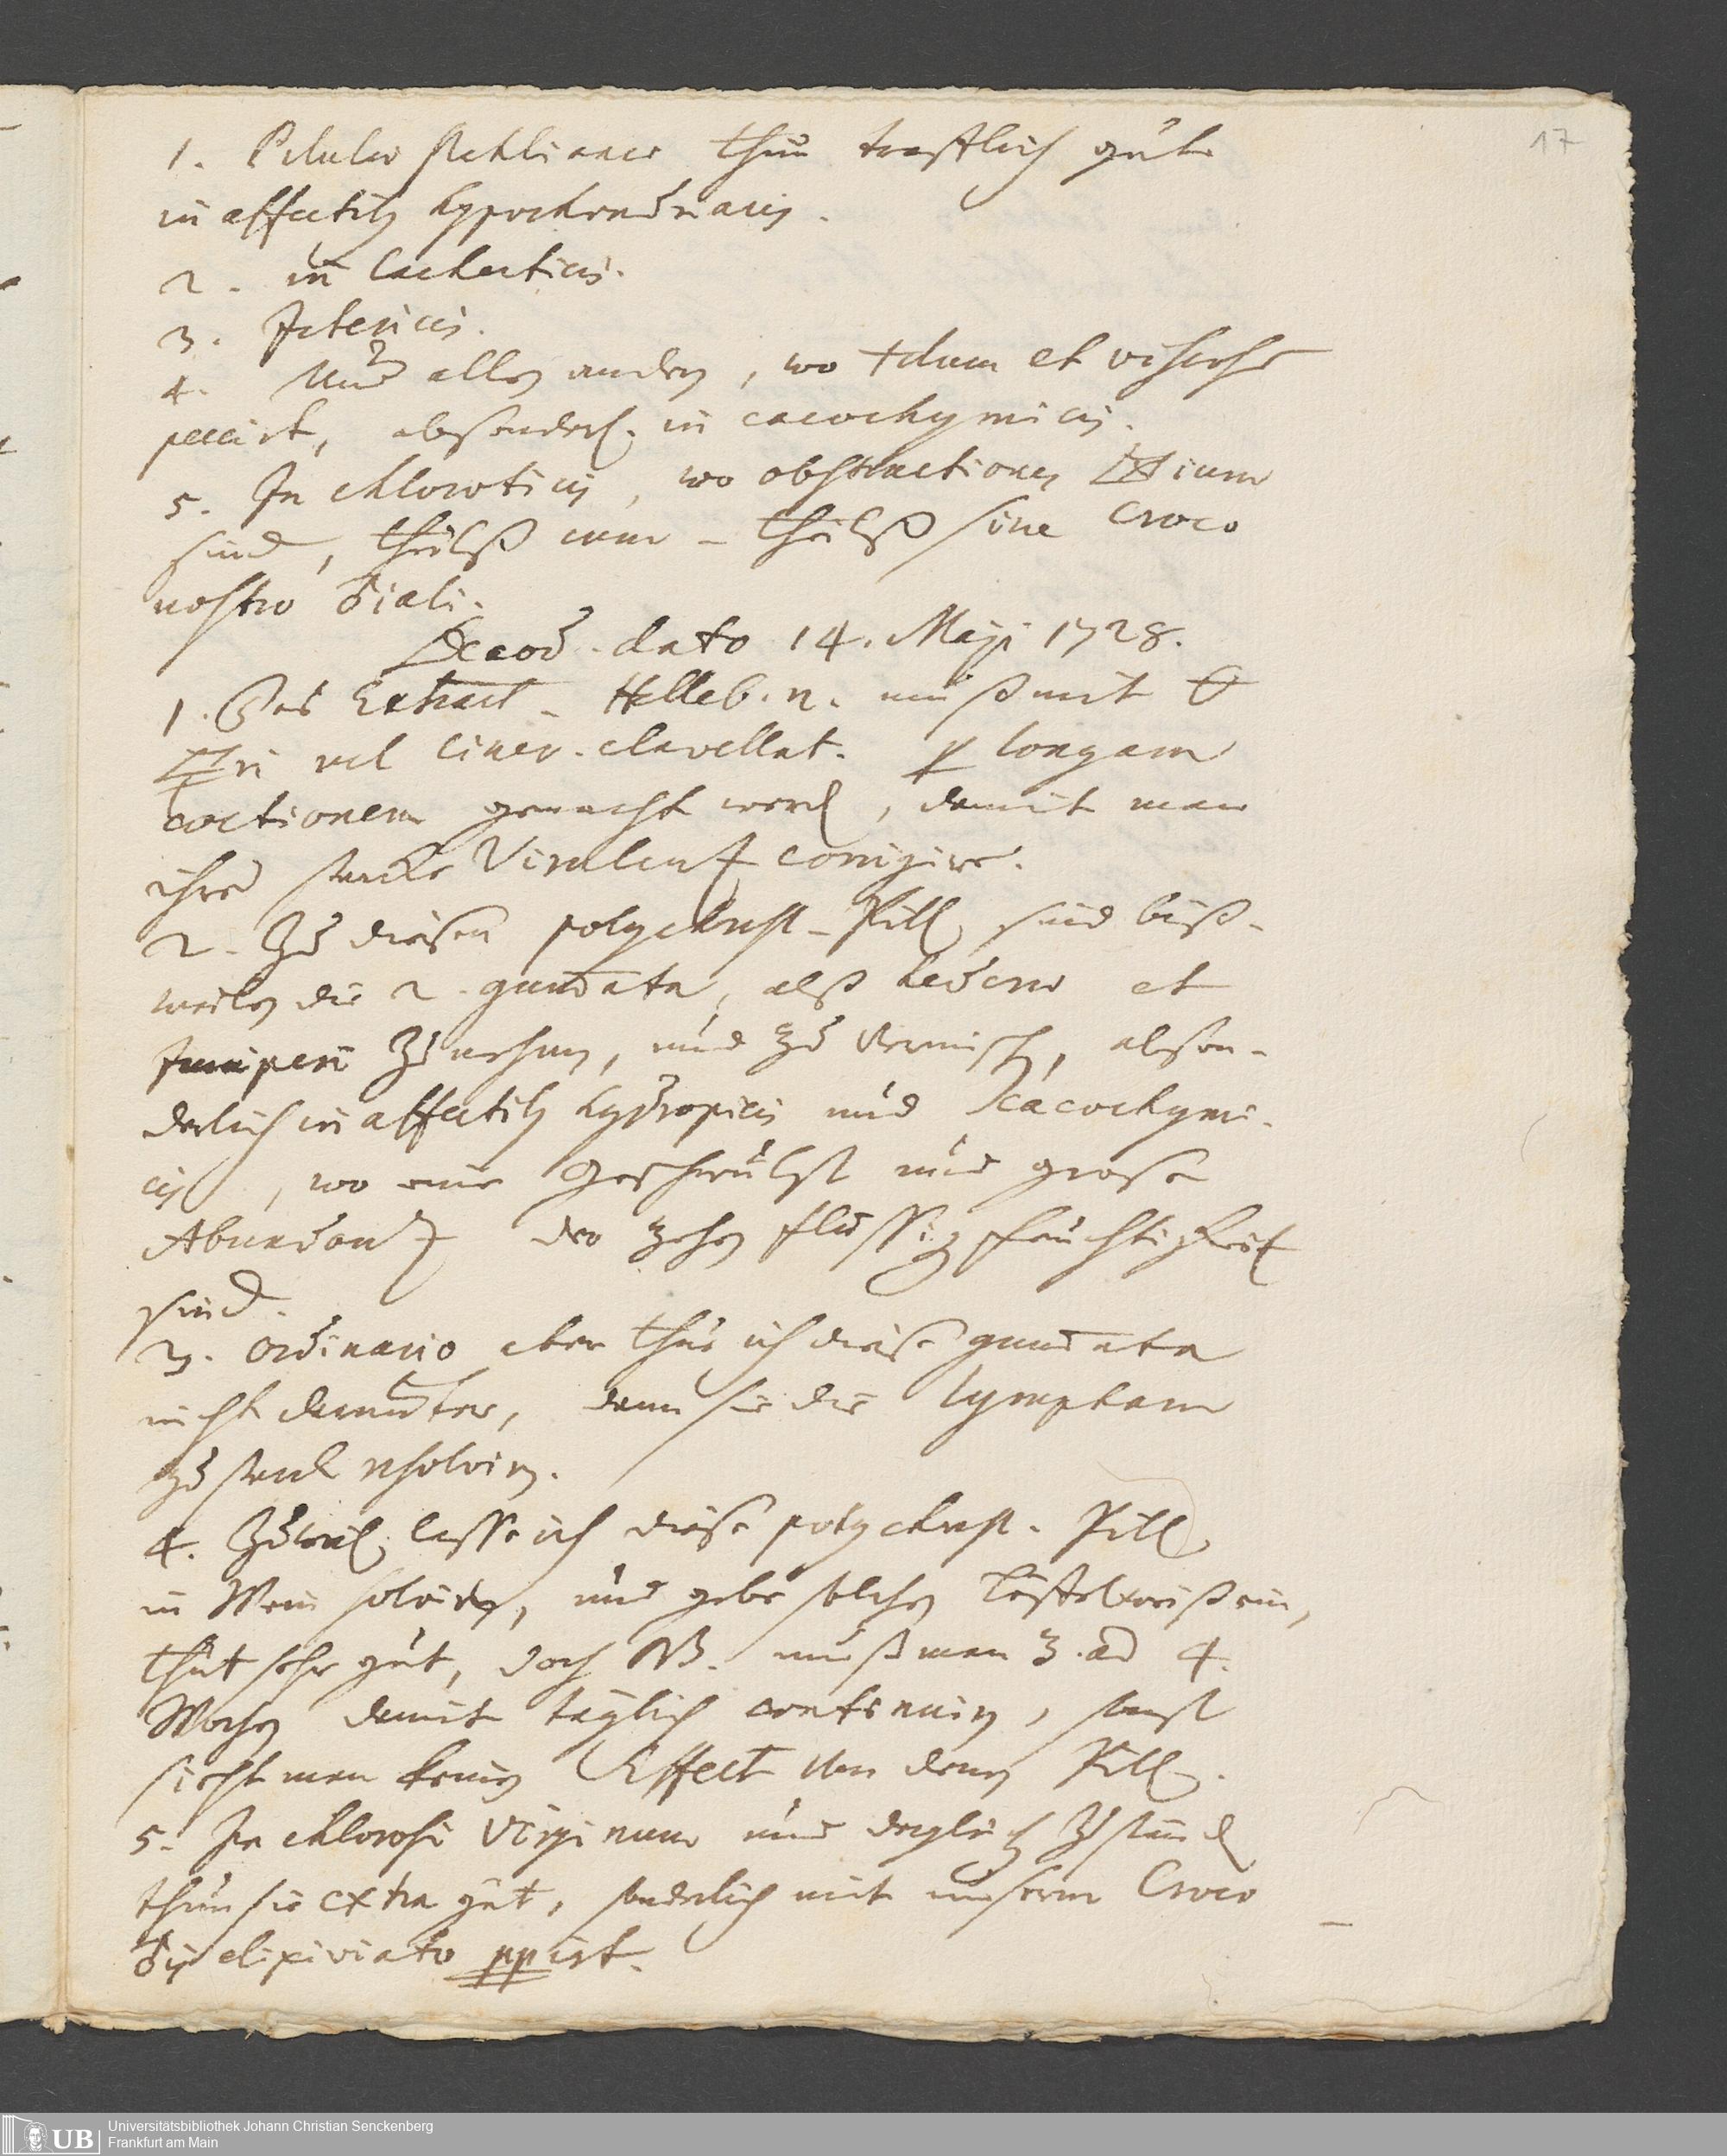 17
1. Pilulae Stahlianae thun trefflich gute
in affectib9 hypochondriacis.
2. in Cachecticis.
3. Ictericis.
4. Und allen andern, wo †dum et viscosum
peccirt, absonderl. in cacochymicis.
5. In chloroticis, wo obstructiones ium
sind, theilß cum - theilß sine Croco
nostro ♂iali.
Decod. dato 14. Maji 1728.
1. Das Extract. Helleb. n. muß mit
ri vel Ciner. clavellat. p longam
coctionem gemacht werd, damit man
ihre starcke Virulentz corrigire.
2. Zu diesen polychrest-Pill. sind biß-
weilen die 2. gummata, alß hederae et
Juniperi zu nehmen, und zu vermisch, abson-
derlich in affectib9 hydropicis und Cacochymi-
cis, wo eine Geschwulst und große
Abundantz der zehen flüssigen feuchtigkeit
sind.
3. Ordinario aber thue ich diese gummata
nicht darunter, denn sie die Lympham
zu starck resolviren.
4. Zuweil. lasse ich diese polychrest. Pill.
in Wein solviren, und gebe solches Löffelweiß ein,
thut sehr gut, doch NB. muß man 3. ad 4.
Wochen damit täglich continuiren, sonst
sieht man keinen Effect von denen Pill.
5. In chlorosi Virginum und dergleich Zuständ
thun sie extra gut, sonderlich mit unserm Croco
♂ij elixiviato ppirt.
UB Universitätsbibliothek Johann Christian Senckenberg
Frankfurt am Main